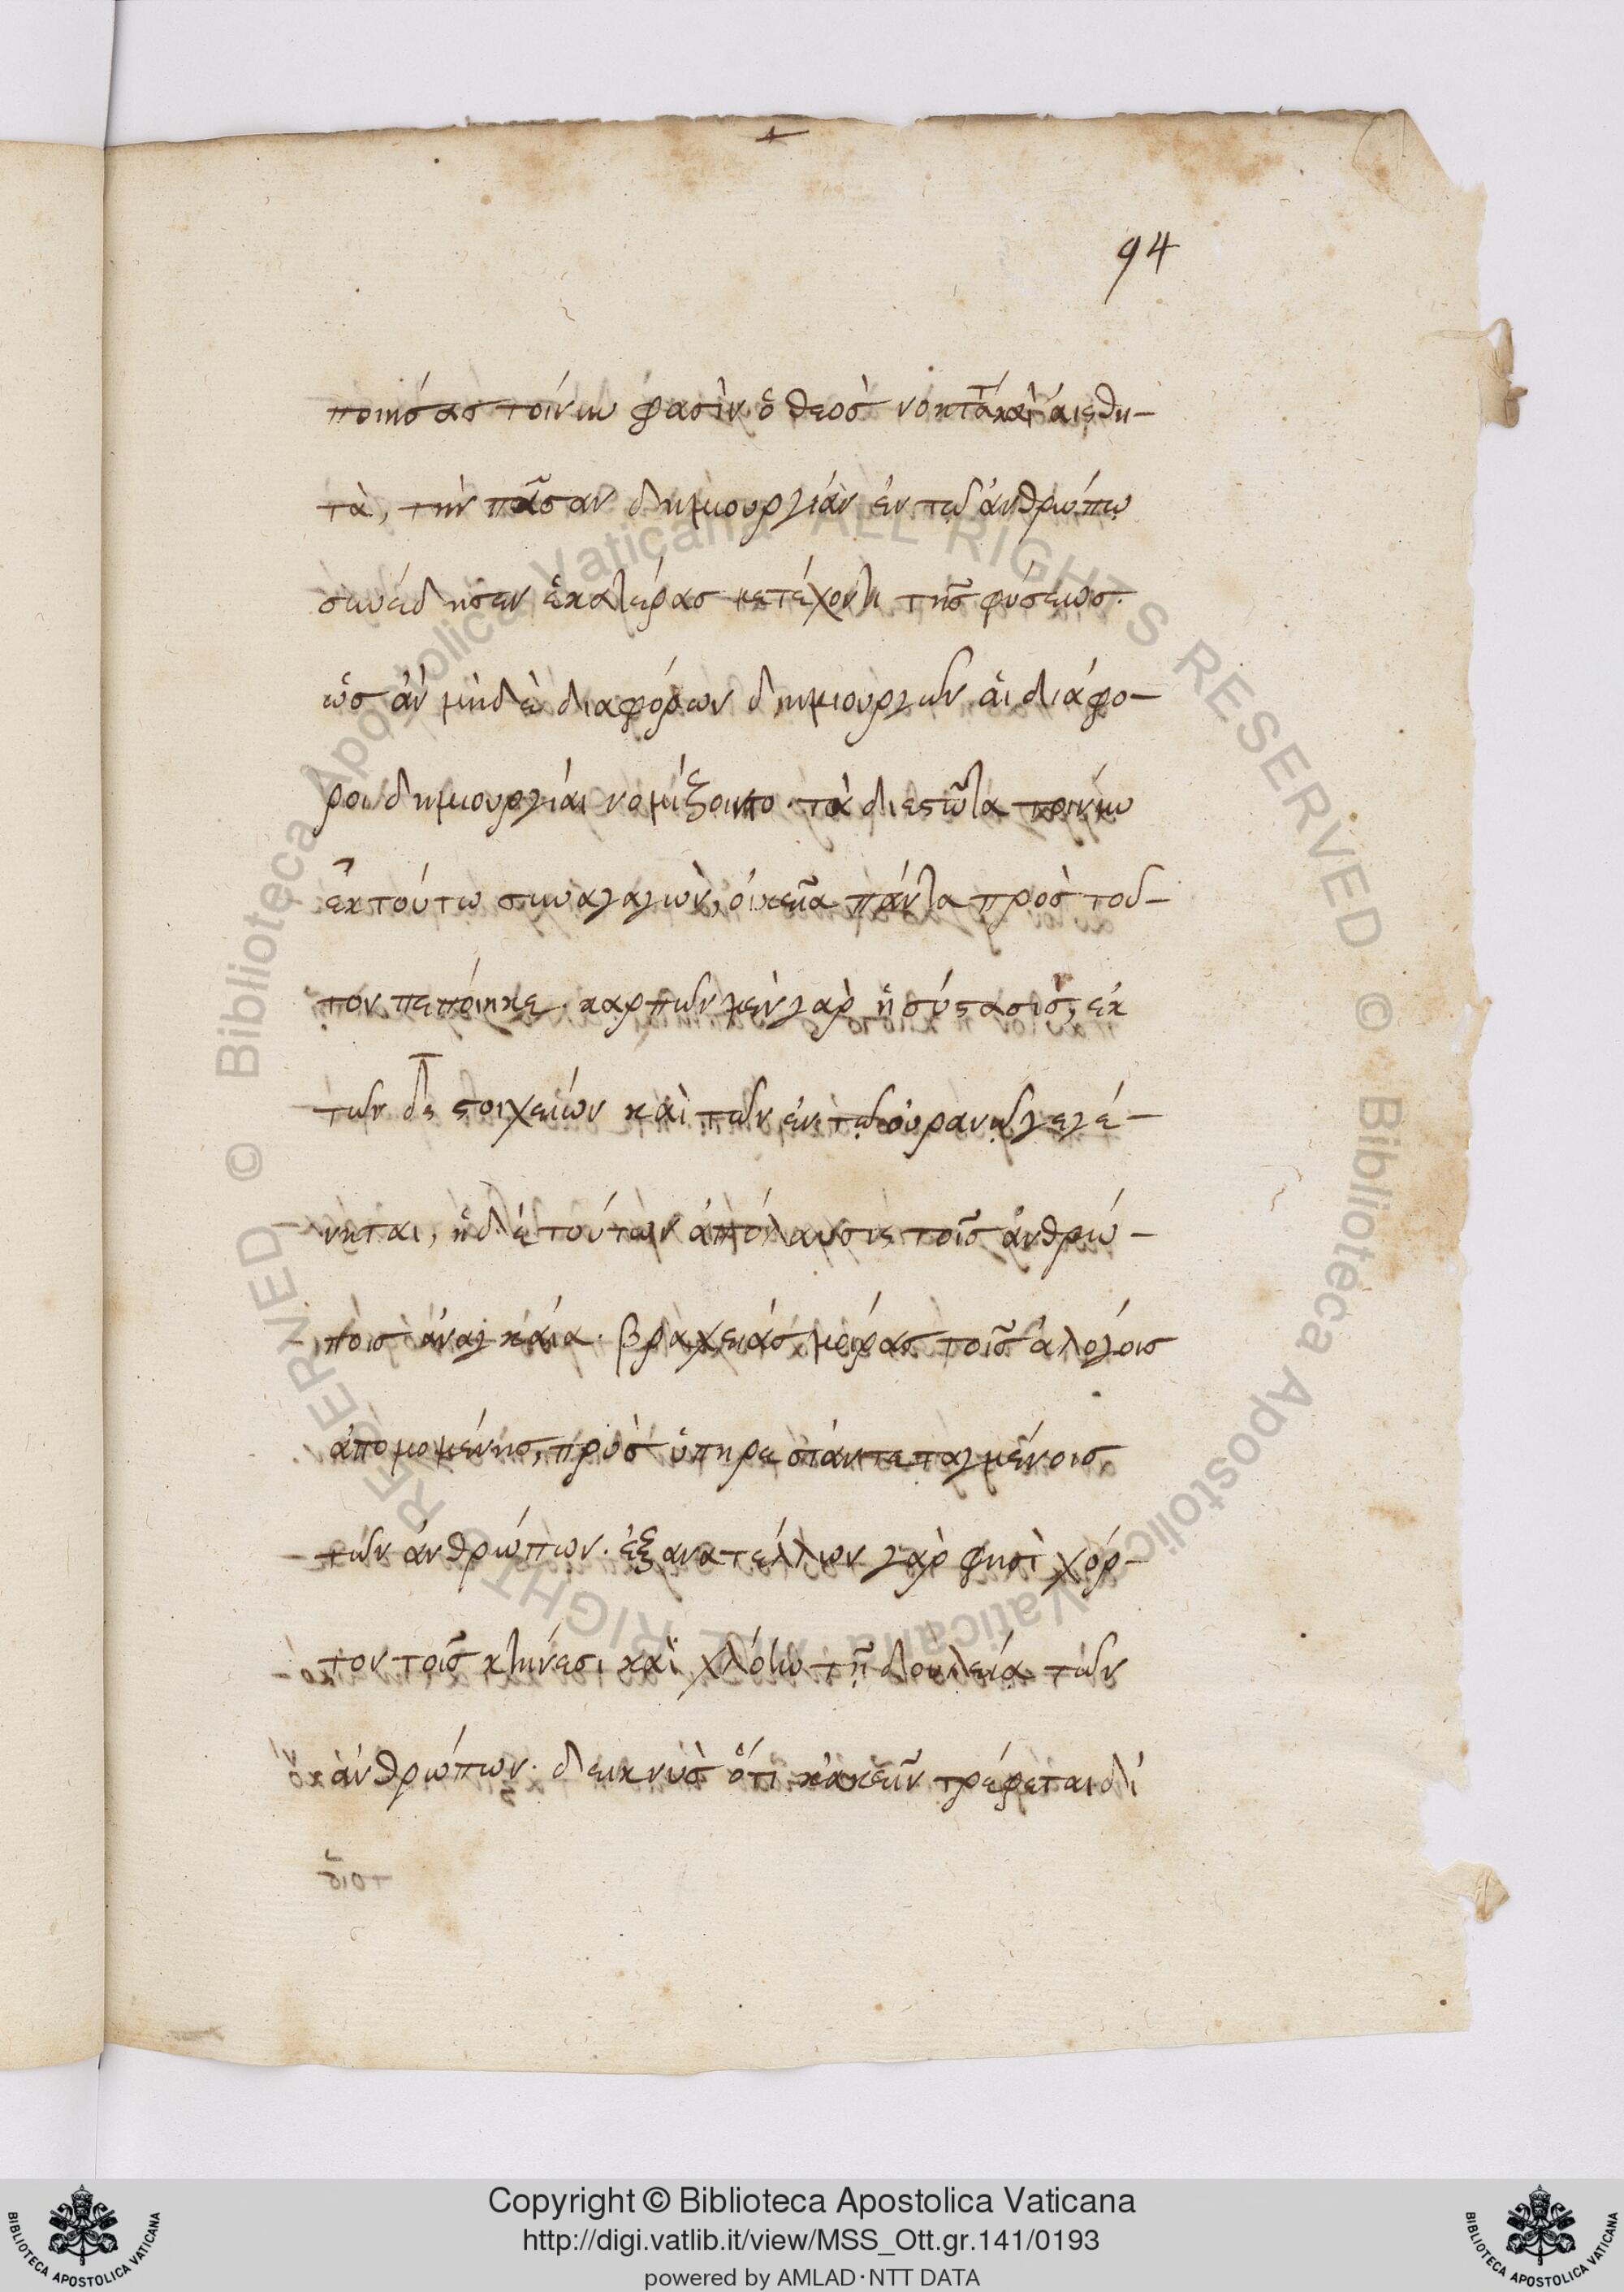 94
ποιήσας τοίνυν φασὶν ὁ θεοσ νοητὰ καὶ αἰσθη-
τὰ, τὴν πᾶσαν δημιουργίαν ἐν τῶ ἀνθρώπω
συνέδησεν ἑκατέρασ μετέχοντι τῆς φύσεωσ.
ὡσ ἂν μηδὲ διαφόρων δημιουργῶν ἁι διάφο-
ροι δημιουργίαι νομίζοιντο. τὰ διεστῶτα τοίνυν
ἐκ τούτω συναγαγὼν, οἰκεῖα πάντα προσ τοῦ-
τον πεποίηκε. καρπῶν μὲν γαρ ἡ σύστασισ, ἐκ
τῶν δ̅ στοιχείων καὶ τῶν ἐν τῶ οὐρανῶ γεγέ-
νηται, ἡ δὲ τούτων ἀπόλαυσις τοῖσ ἀνθρώ-
ποισ ἀναγκαία. βραχείασ μοίρας τοῖσ ἀλόγοισ
ἀπομομένησ, πρὸσ ὑπηρεσίαν τεταγμένοισ
τῶν ἀνθρώπων. ἐξανατέλλων γὰρ φησὶ χόρ-
τον τοῖσ κτήνεσι καὶ χλόην τῆ δουλεία τῶν
ἀνθρώπων. δεικνὺσ ὅτι κἀκεῖν τρέφεται δι
Copyright © Biblioteca Apostolica Vaticana
http://digi.vatlib.it/view/MSS_Ott.gr.141/0193
powered by AMLAD·NTT DATA